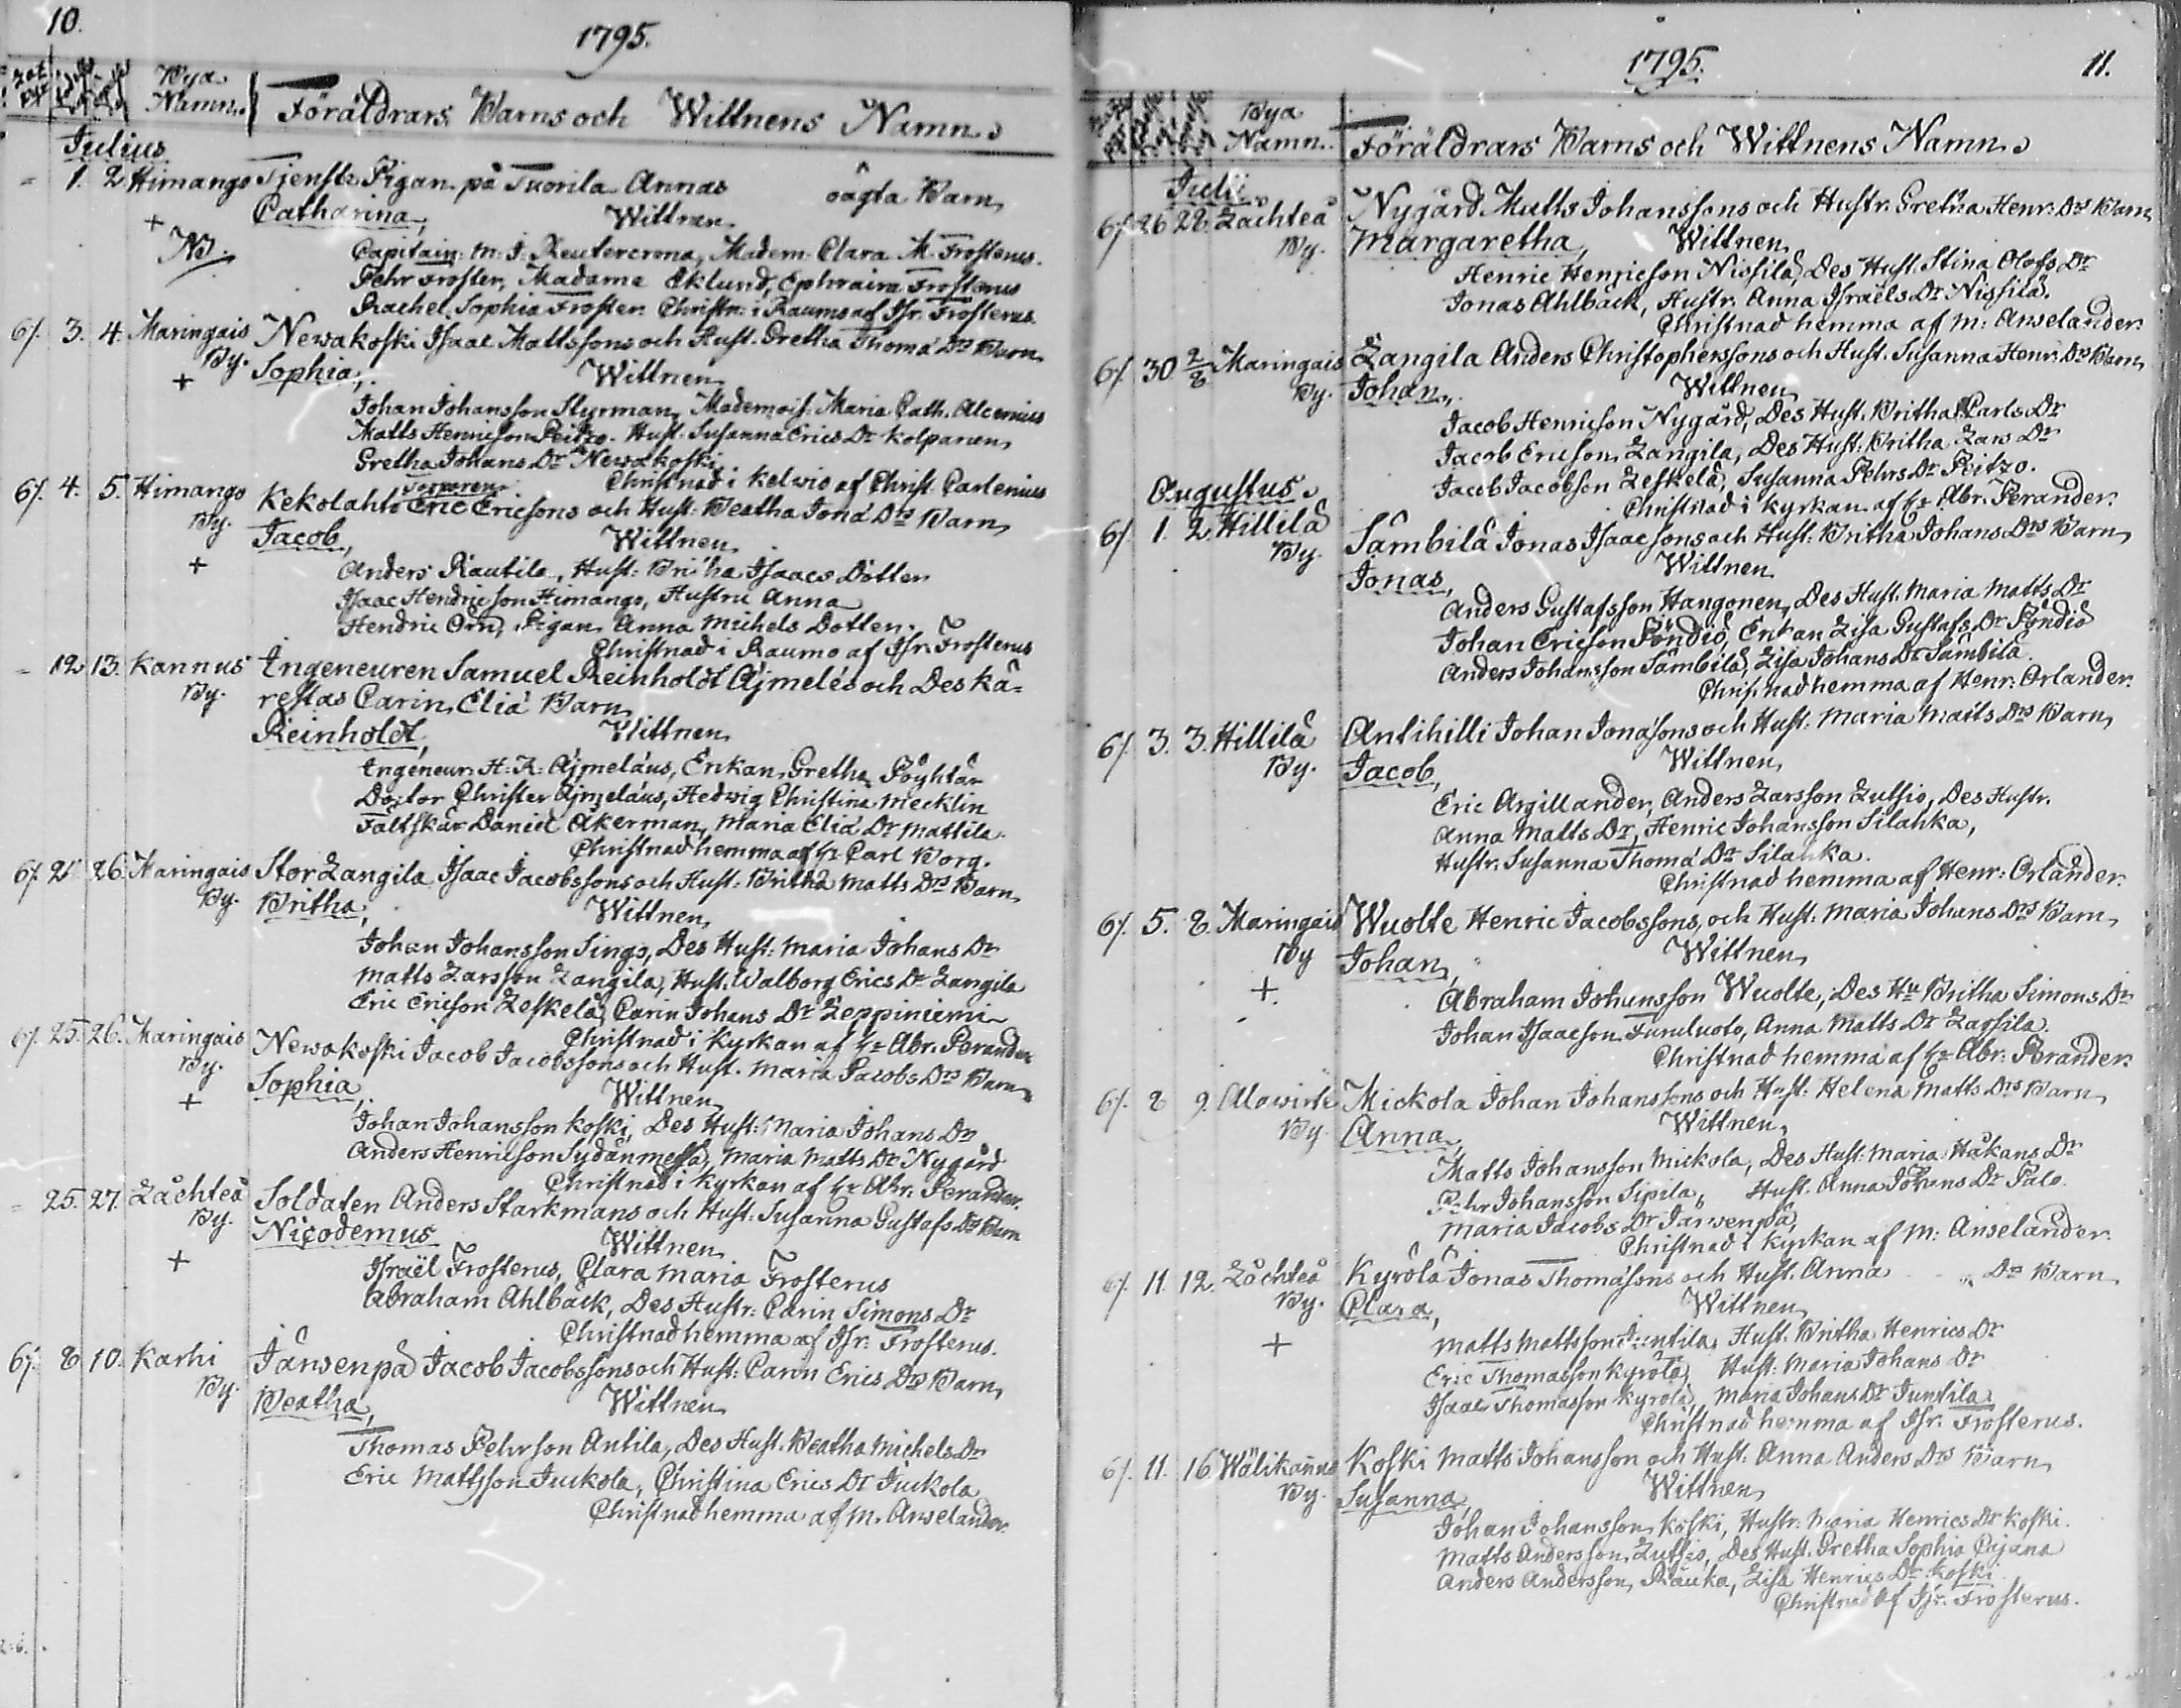 10.
1795.
Bya
Namn.
Föräldrars Barns och Wittnens Namn.
Julius
- 1. 2 Himango Tjenste Pigan på Tuorila Annas oägta Barn
Catharina, Wittnen
+
NB.
Capitain: M: J: Reutercrona, Madem: Clara M. Frosterus.
Pehr Froster, Madame Eklund, Ephraim Frosterus
Rachel Sophia Froster. Christn: i Raumo af Isr. Frosterus.
6/. 3. 4. Maringais Newakoski Isaac Mattssons och Hust. Gretha Thomæ Drs Barn
By. Sophia, Wittnen
+
Johan Johansson Styrman, Mademois: Maria Cath. Alcenius
Matts Henricson Peitzo. Hust. Susanna Erics Dr Kolpanen
Gretha Johans Dr Newakoski
Christnad i Kelwio af Christ. Carlenius
Torparen
6/. 4. 5. Himango Kekolahti Eric Ericsons och Hust: Beatha Jonæ Drs Barn
By. Jacob, Wittnen
+
Anders Rautila, Hust: Britha Isaacs Dotter
Isaac Hendricson Himango, Hustru Anna
Hendric Örn, Pigan Anna Michels Dotter.
Christnad i Raumo af Isr. Frosterus
- 12 13. Kannus Ingeneuren Samuel Reinholdt Ajmelés och Des Kä=
By. restas Carin Eliæ Barn
Reinholdt, Wittnen
Ingeneur: H: R: Ajmelæus, Enkan Gretha Pöyhtär
Doctor Christer Ajmelæus, Hedwig Christina Mecklin
Fältskär Daniel Åkerman, Maria Eliæ Dr Mattila.
Christnad hemma af Hr Carl Borg.
6/. 25 26. Maringais Stor Langila Isaac Jacobssons och Hust: Britha Matts Drs Barn
By. Britha, Wittnen
Johan Johansson Singo, Des Hust: Maria Johans Dr
Matts Larsson Langila, Hust. Walborg Erics Dr Langila
Eric Ericson Leskelä, Carin Johans Dr Leppiniemi
Christnad i Kyrkan af Hr Abr. Perander
6/. 25. 26. Maringais Newakoski Jacob Jacobssons och Hust. Maria Jacobs Drs Barn
By. Sophia, Wittnen
+
Johan Johansson Koski, Des Hust: Maria Johans Dr
Anders Henricson Sydänmetsä, Maria Matts Dr Nygård
Christnad i Kyrkan af Hr Abr. Perander.
- 25. 27. Låchteå Soldaten Anders Starkmans och Hust: Susanna Gustafs Drs Barn
By. Nicodemus Wittnen
+
Israël Frosterus, Clara Maria Frosterus
Abraham Ahlbäck, Des Hustr: Carin Simons Dr
Christnad hemma af Isr: Frosterus.
6/. 8 10. Karhi Järwenpä Jacob Jacobssons och Hust: Carin Erics Drs Barn
By. Beatha, Wittnen
Thomas Pehrson Antila, Des Hust. Beatha Michels Dr
Eric Mattsson Juckola, Christina Erics Dr Juckola
Christnad hemma af M. Anselander.
1795.
11.
Bya
Namn.
Föräldrars Barns och Wittnens Namn.
Julii
6/. 26 28. Låchteå Nygård Matts Johanssons och Hustr. Gretha Henr: Drs Barn
By. Margaretha, Wittnen
Henric Henricson Nissilä, Des Hust. Stina Olofs Dr
Jonas Ahlbäck, Hustr. Anna Israels Dr Nissilä.
Christnad hemma af M: Anselander.
6/. 30 2/8 Maringais Langila Anders Christopherssons och Hust. Susanna Henr. Drs Barn
By. Johan, Wittnen
Jacob Henricson Nygård, Des Hust. Britha Carls Dr
Jacob Ericson Langila, Des Hust: Britha Lars Dr
Jacob Jacobson Leskelä, Susanna Pehrs Dr Peitzo.
Christnad i Kyrkan af Hr Abr. Perander.
Augustus
6/. 1. 2. Hillilä Sämbilä Jonas Isaacsons och Hust: Britha Johans Drs Barn
By. Jonas, Wittnen
Anders Gustafsson Hangonen, Des Hust. Maria Matts Dr
Johan Ericson Pöndiö, Enkan Lisa Gustafs Dr Pöndiö
Anders Johansson Sämbilä, Lisa Johans Dr Sämbilä.
Christnad hemma af Henr: Orlander.
6/. 3. 3. Hillilä Antihilli Johan Jonæsons och Hust: Maria Matts Drs Barn
By. Jacob, Wittnen
Eric Argillander, Anders Larsson Lutsio, Des Hustr.
Anna Matts Dr, Henric Johansson Silahka,
Hustr. Susanna Thomæ Dr Silahka.
Christnad hemma af Henr: Orlander.
6/. 5. 8. Maringais Wuolte Henric Jacobssons och Hust: Maria Johans Drs Barn
By Johan, Wittnen
+
Abraham Johansson Wuolte, Des Hu Britha Simons Dr
Johan Isaacson Furuluoto, Anna Matts Dr Lassila.
Christnad hemma af Hr Abr: Perander.
6/. 8 9. Alawirte Mickola Johan Johanssons och Hust: Helena Matts Drs Barn
By. Anna, Wittnen
Matts Johansson Mickola, Des Hust: Maria Håkans Dr
Pehr Johansson Sipila, Hust. Anna Johans Dr Palo.
Maria Jacobs Dr Järwenpä,
Christnad i Kyrkan af M: Anselander.
6/. 11. 12. Låchteå Kyrölä Jonas Thomæsons och Hust. Anna „ Drs Barn
By. Clara, Wittnen
+
Matts Mattsson Juntila, Hust. Britha Henrics Dr
Eric Thomasson Kyrölä, Hust: Maria Johans Dr
Isaac Thomasson Kyrölä, Maria Johans Dr Juntila
Christnad hemma af Isr. Frosterus.
6/. 11. 16. Wälikannus Koski Matts Johansson och Hust: Anna Anders Drs Barn
By. Susanna, Wittnen
Johan Johansson Koski, Hustr: Maria Henrics Dr Koski.
Matts Andersson Lutsio, Des Hust. Gretha Sophia Cajana
Anders Andersson Räuka, Lisa Henrics Dr Koski
Christnad af Isr. Frosterus.